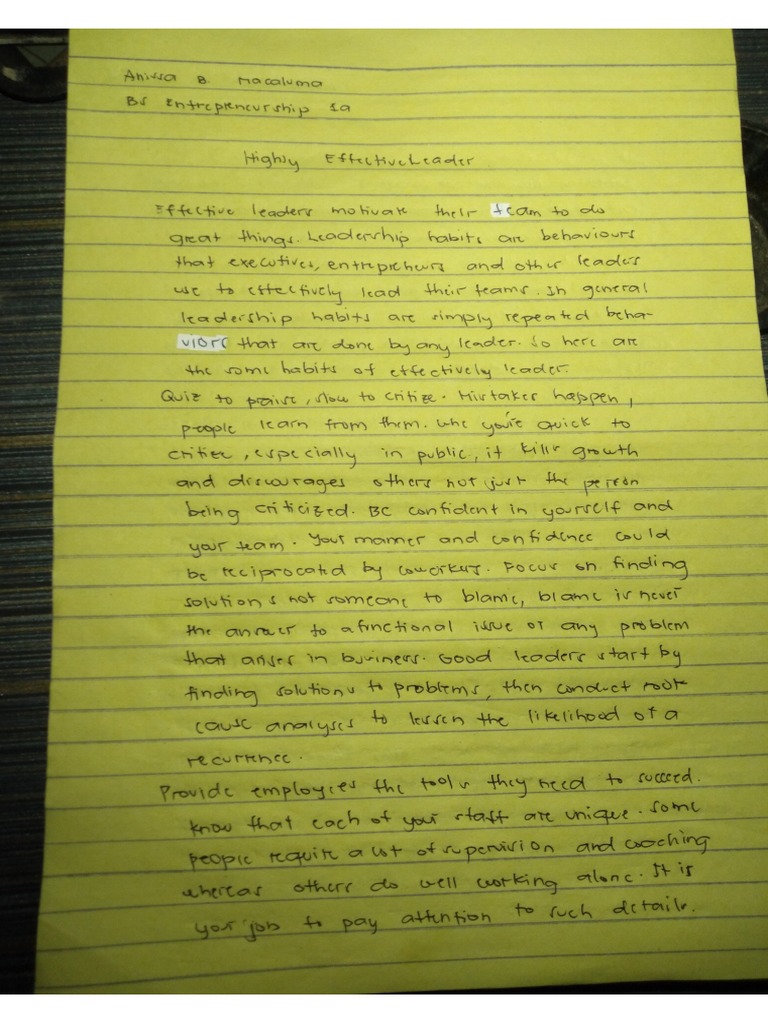 Anissa B. Macaluma
BS Entrepreneurship 1a
Highly Effective Leader
Effective leaders motivate their team to do
great things. Leadership habits are behaviours
that executives, entrepreneurs and other leaders
use to effectively lead their teams. In general
leadership habits are simply repeated beha-
viors that are done by any leader. So here are
the some habits of effectively leader.
Quiz to praise, slow to critize. Mistakes happen,
people learn from them. Whe you're quick to
critize, especially in public, it kills growth
and discourages others not just the person
being criticized. Be confident in yourself and
your team. Your manner and confidence could
be reciprocated by coworkers. Focus on finding
solutions not someone to blame, blame is never
the answer to a functional issue or any problem
that arises in business. Good leaders start by
finding solutions to problems, then conduct root
cause analyses to lessen the likelihood of a
recurrence.
Provide employees the tools they need to succeed.
know that each of your staff are unique. Some
people require a lot of supervision and coaching
whereas others do well working alone. It is
your job to pay attention to such details.